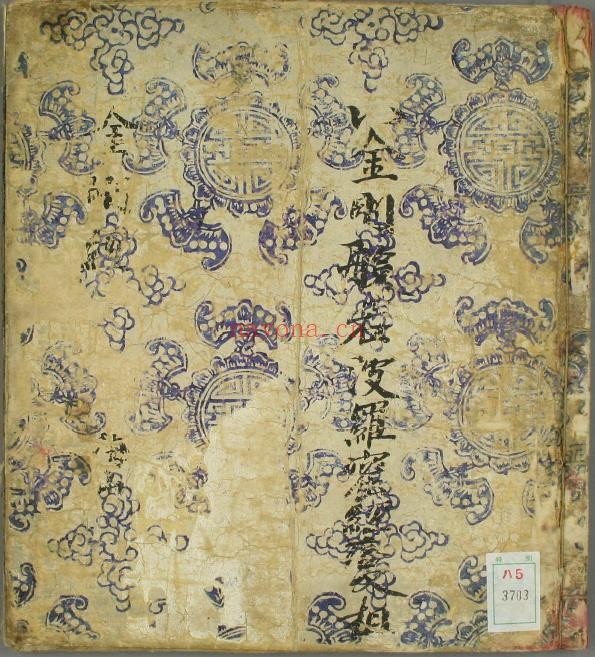 金剛般若波羅密經
金剛經
nayona.cn
特別
ハ5
3703